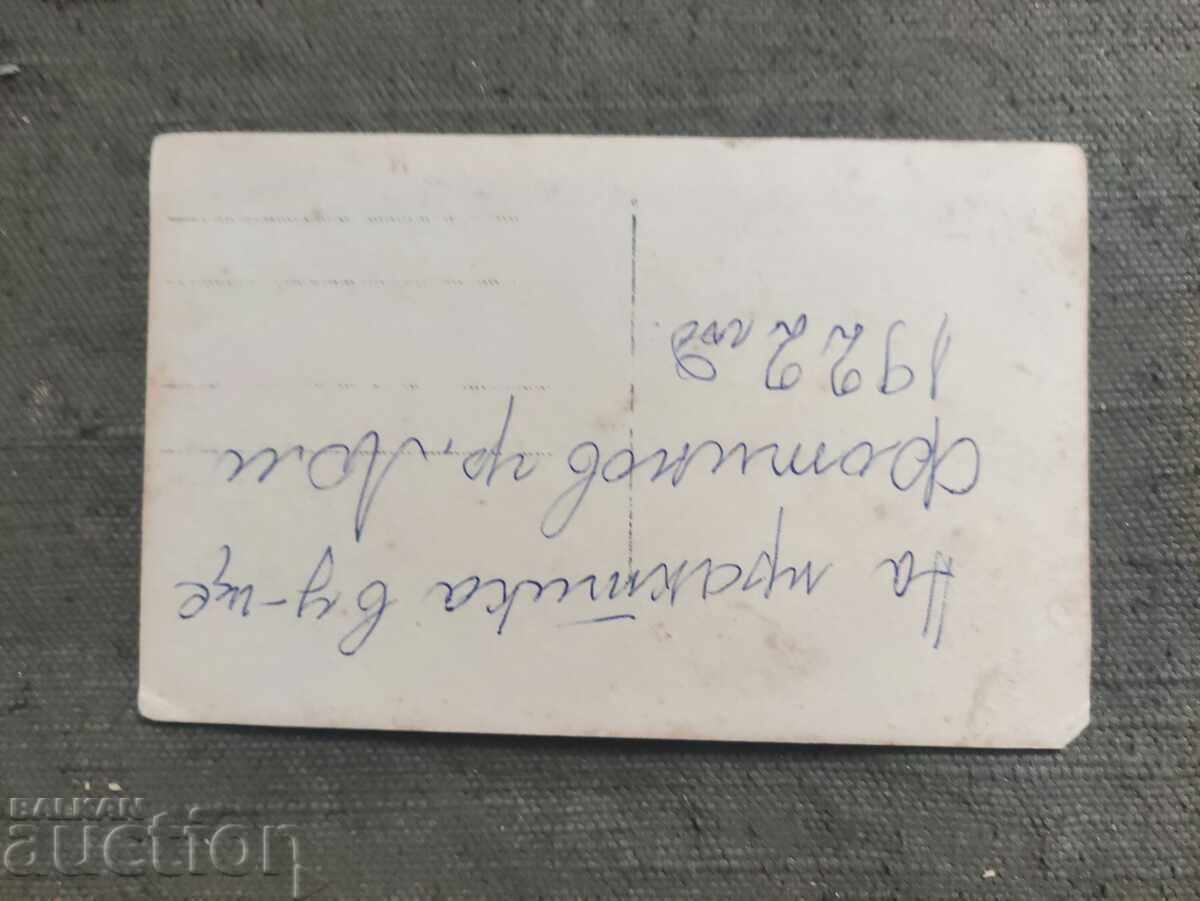 На практика в у-ще
Фотинов гр. Лом
1922 год.
BALKAN
auction